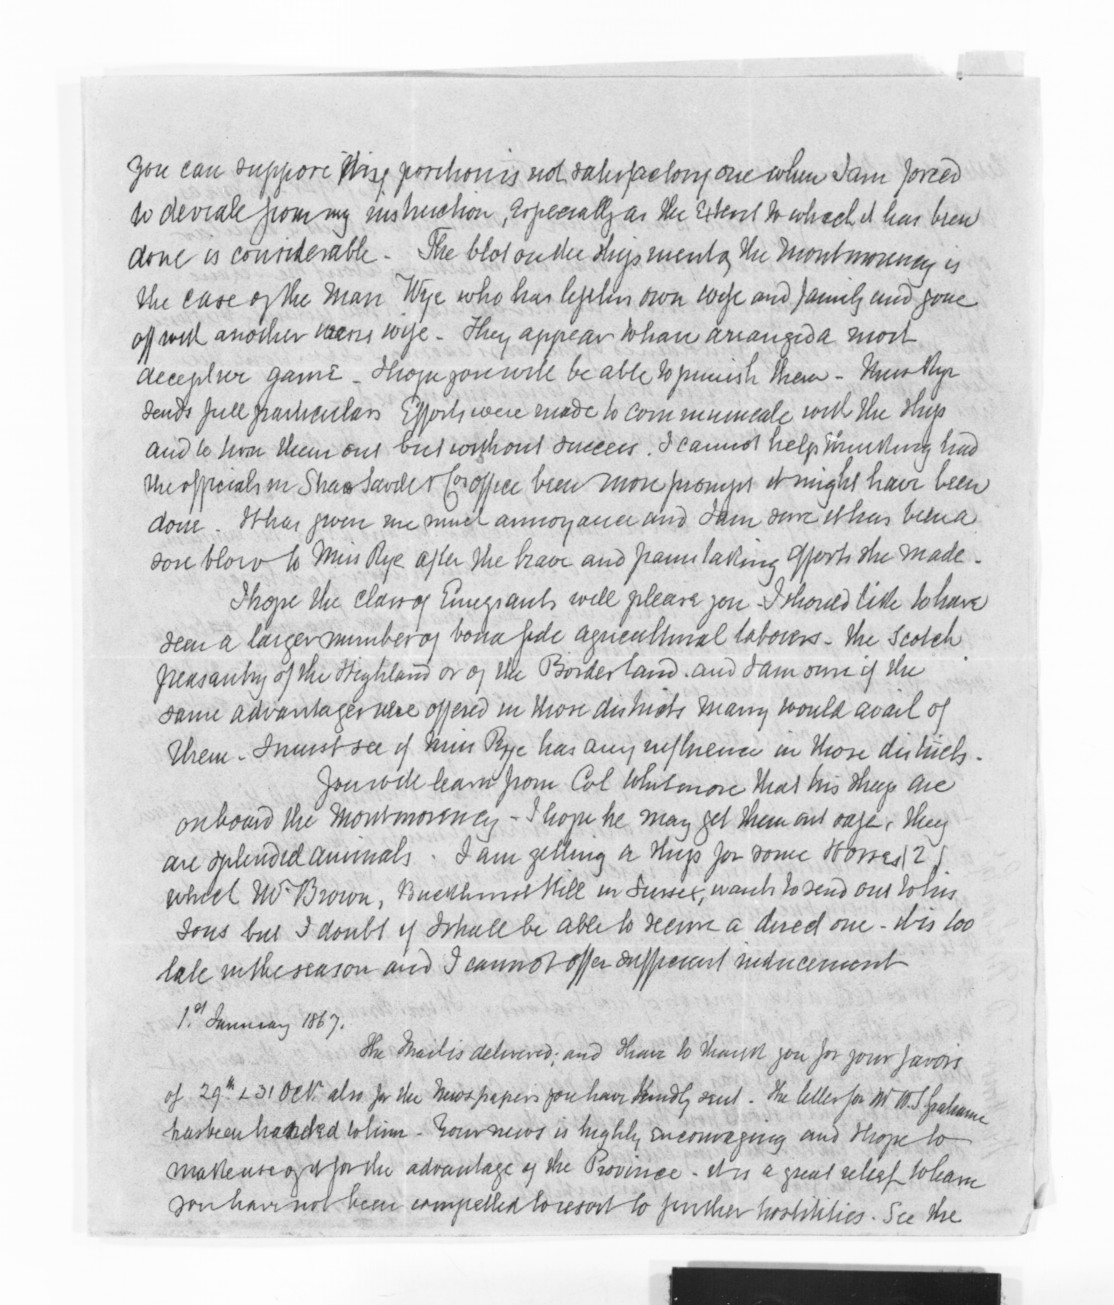 you can suppose my position is not satisfactory one when I am forced
to deviate from my instruction, Especially as the Extent to which it has been
done is considerable - The blot on the shipment of the Montmorency is
the case of the man Wye who has left his own wife and family and gone
off with another mens wife - They appear to have arranged a most
deceptive game - I hope you will be able to punish them - Miss Rye
sends full particulars Efforts were made to communicate with the ship
and to turn them out but without success. I cannot help thinking had
the officials in Shaw Savill & Cos office been more prompt it might have been
done. It has given me much annoyance and I am sure it has been a
sore blow to Miss Rye after the brave and painstaking efforts she made.
I hope the class of Emigrants will please you - I should like to have
seen a larger number of bona fide agricultural laborers - the Scotch
peasantry of the Highland or of the Border land. and I am sure if the
same advantages were offered in those districts many would avail of
them - I must see if Miss Rye has any influence in those districts.
You will learn from Col Whitmore that his sheep are
on board the Montmorency - I hope he may get them out safe, they
are splendid animals. I am getting a ship for some Horses (2)
which Mr Brown, Buckhurst Hill in Sussex, wants to send out to his
sons but I doubt if I shall be able to secure a direct one - it is too
late in the season and I cannot offer sufficient inducement
1st January 1867.
The Mail is delivered, and I have to thank you for your favors
of 29th & 31 Octr also for the Newspapers you have kindly sent - The letter for Mr W.S Grahame
has been handed to him - Your news is highly encouraging and I hope to
make use of it for the advantage of the Province - it is a great relief to learn
you have not been compelled to resort to further hostilities. See the